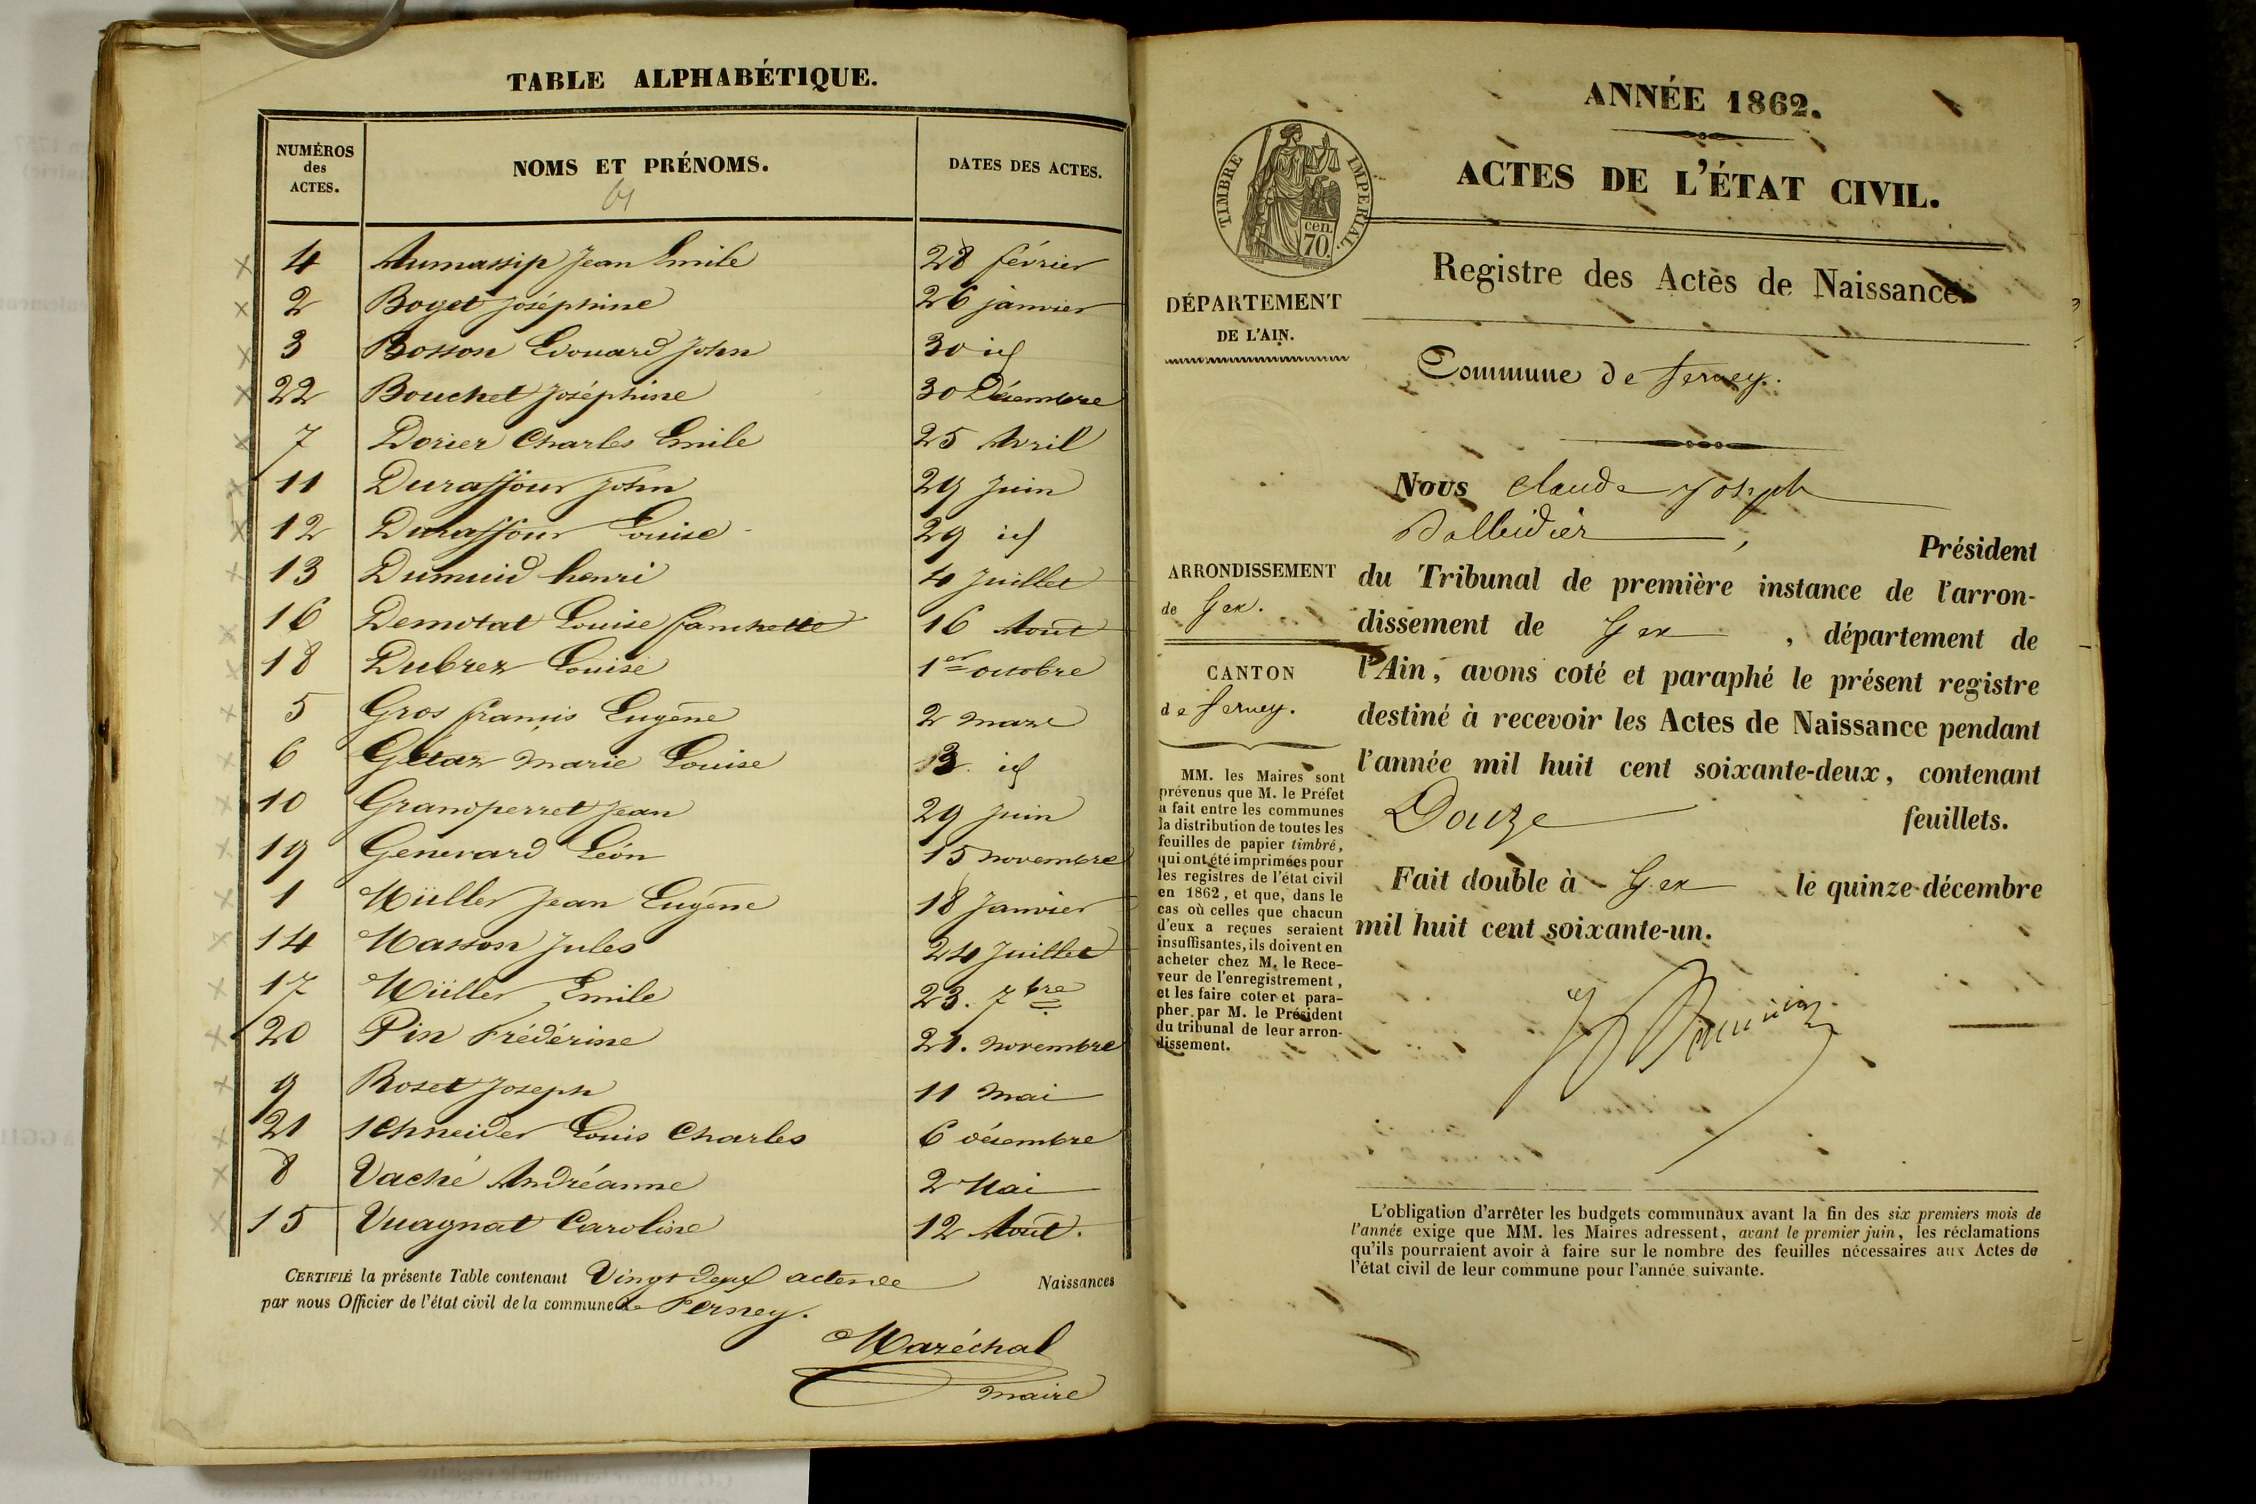 TABLE ALPHABÉTIQUE.
NUMÉROS des ACTES.
NOMS ET PRÉNOMS.
DATES DES ACTES.
61
4 Aumassip Jean Emile 28 février
2 Boget Joséphine 26 janvier
3 Bosson Edouard John 30 id
22 Bouchet Joséphine 30 Désembre
7 Dorier Charles Emile 25 Avril
11 Duraffour John 29 Juin
12 Duraffour Louise 29 id
13 Dumuid henri 4 Juillet
16 Demotat Louise fanchette 16 Aout
18 Dubrez Louise 1er octobre
5 Gros françis Eugène 2 mars
6 Gétaz marie Louise id
10 Grandperret Jean 29 Juin
19 Genevard Léon 15 novembre
1 Müller Jean Eugène 18 Janvier
14 Masson Jules 24 Juillet
17 Müller Emile 23. 7bre
20 Pin Frédérine 21. novembre
9 Roset Joseph 11 mai
21 Schneider Louis Charles 6 désembre
8 Vaché Andréanne 2 Mai
15 Vuagnat Caroline 12 Aout.
CERTIFIÉ la présente Table contenant Vingt deux actes de Naissances
par nous Officier de l'état civil de la commune de Ferney.
Maréchal
maire
ANNÉE 1862.
ACTES DE L'ÉTAT CIVIL.
TIMBRE IMPÉRIAL.
cen.
70.
Registre des Actes de Naissance.
DÉPARTEMENT
DE L'AIN.
Commune de Ferney.
Nous Claude Joseph
, Président
ARRONDISSEMENT
de Gex.
CANTON
de Ferney.
du Tribunal de première instance de l'arron-
dissement de Gex , département de
l'Ain, avons coté et paraphé le présent registre
destiné à recevoir les Actes de Naissance pendant
l'année mil huit cent soixante-deux, contenant
Douze feuillets.
Fait double à Gex le quinze décembre
mil huit cent soixante-un.
MM. les Maires sont
prévenus que M. le Préfet
a fait entre les communes
la distribution de toutes les
feuilles de papier timbré,
qui ont été imprimées pour
les registres de l'état civil
en 1862, et que, dans le
cas où celles que chacun
d'eux a reçues seraient
insuffisantes, ils doivent en
acheter chez M. le Rece-
veur de l'enregistrement,
et les faire coter et para-
pher par M. le Président
du tribunal de leur arron-
dissement.
L'obligation d'arrêter les budgets communaux avant la fin des six premiers mois de
l'année exige que MM. les Maires adressent, avant le premier juin, les réclamations
qu'ils pourraient avoir à faire sur le nombre des feuilles nécessaires aux Actes de
l'état civil de leur commune pour l'année suivante.